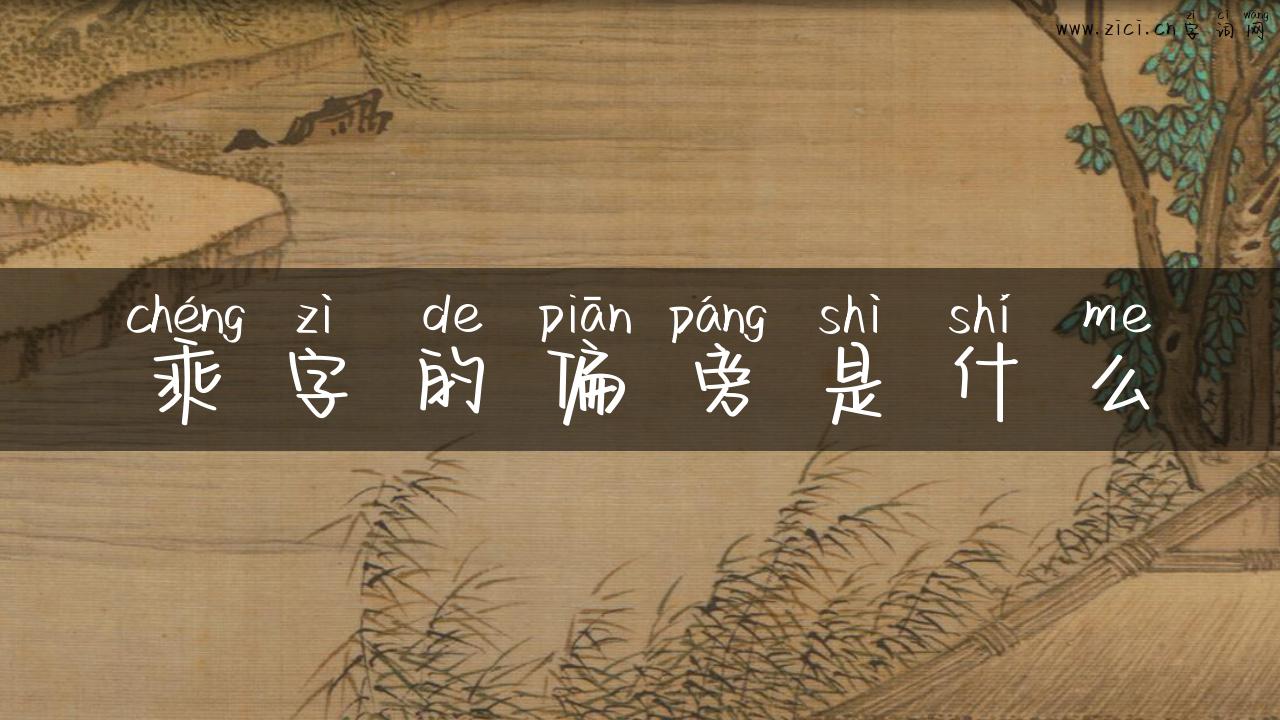 zì cí wǎng
www.zici.cn字词网
chéng zì de piān páng shì shí me
乘字的偏旁是什么